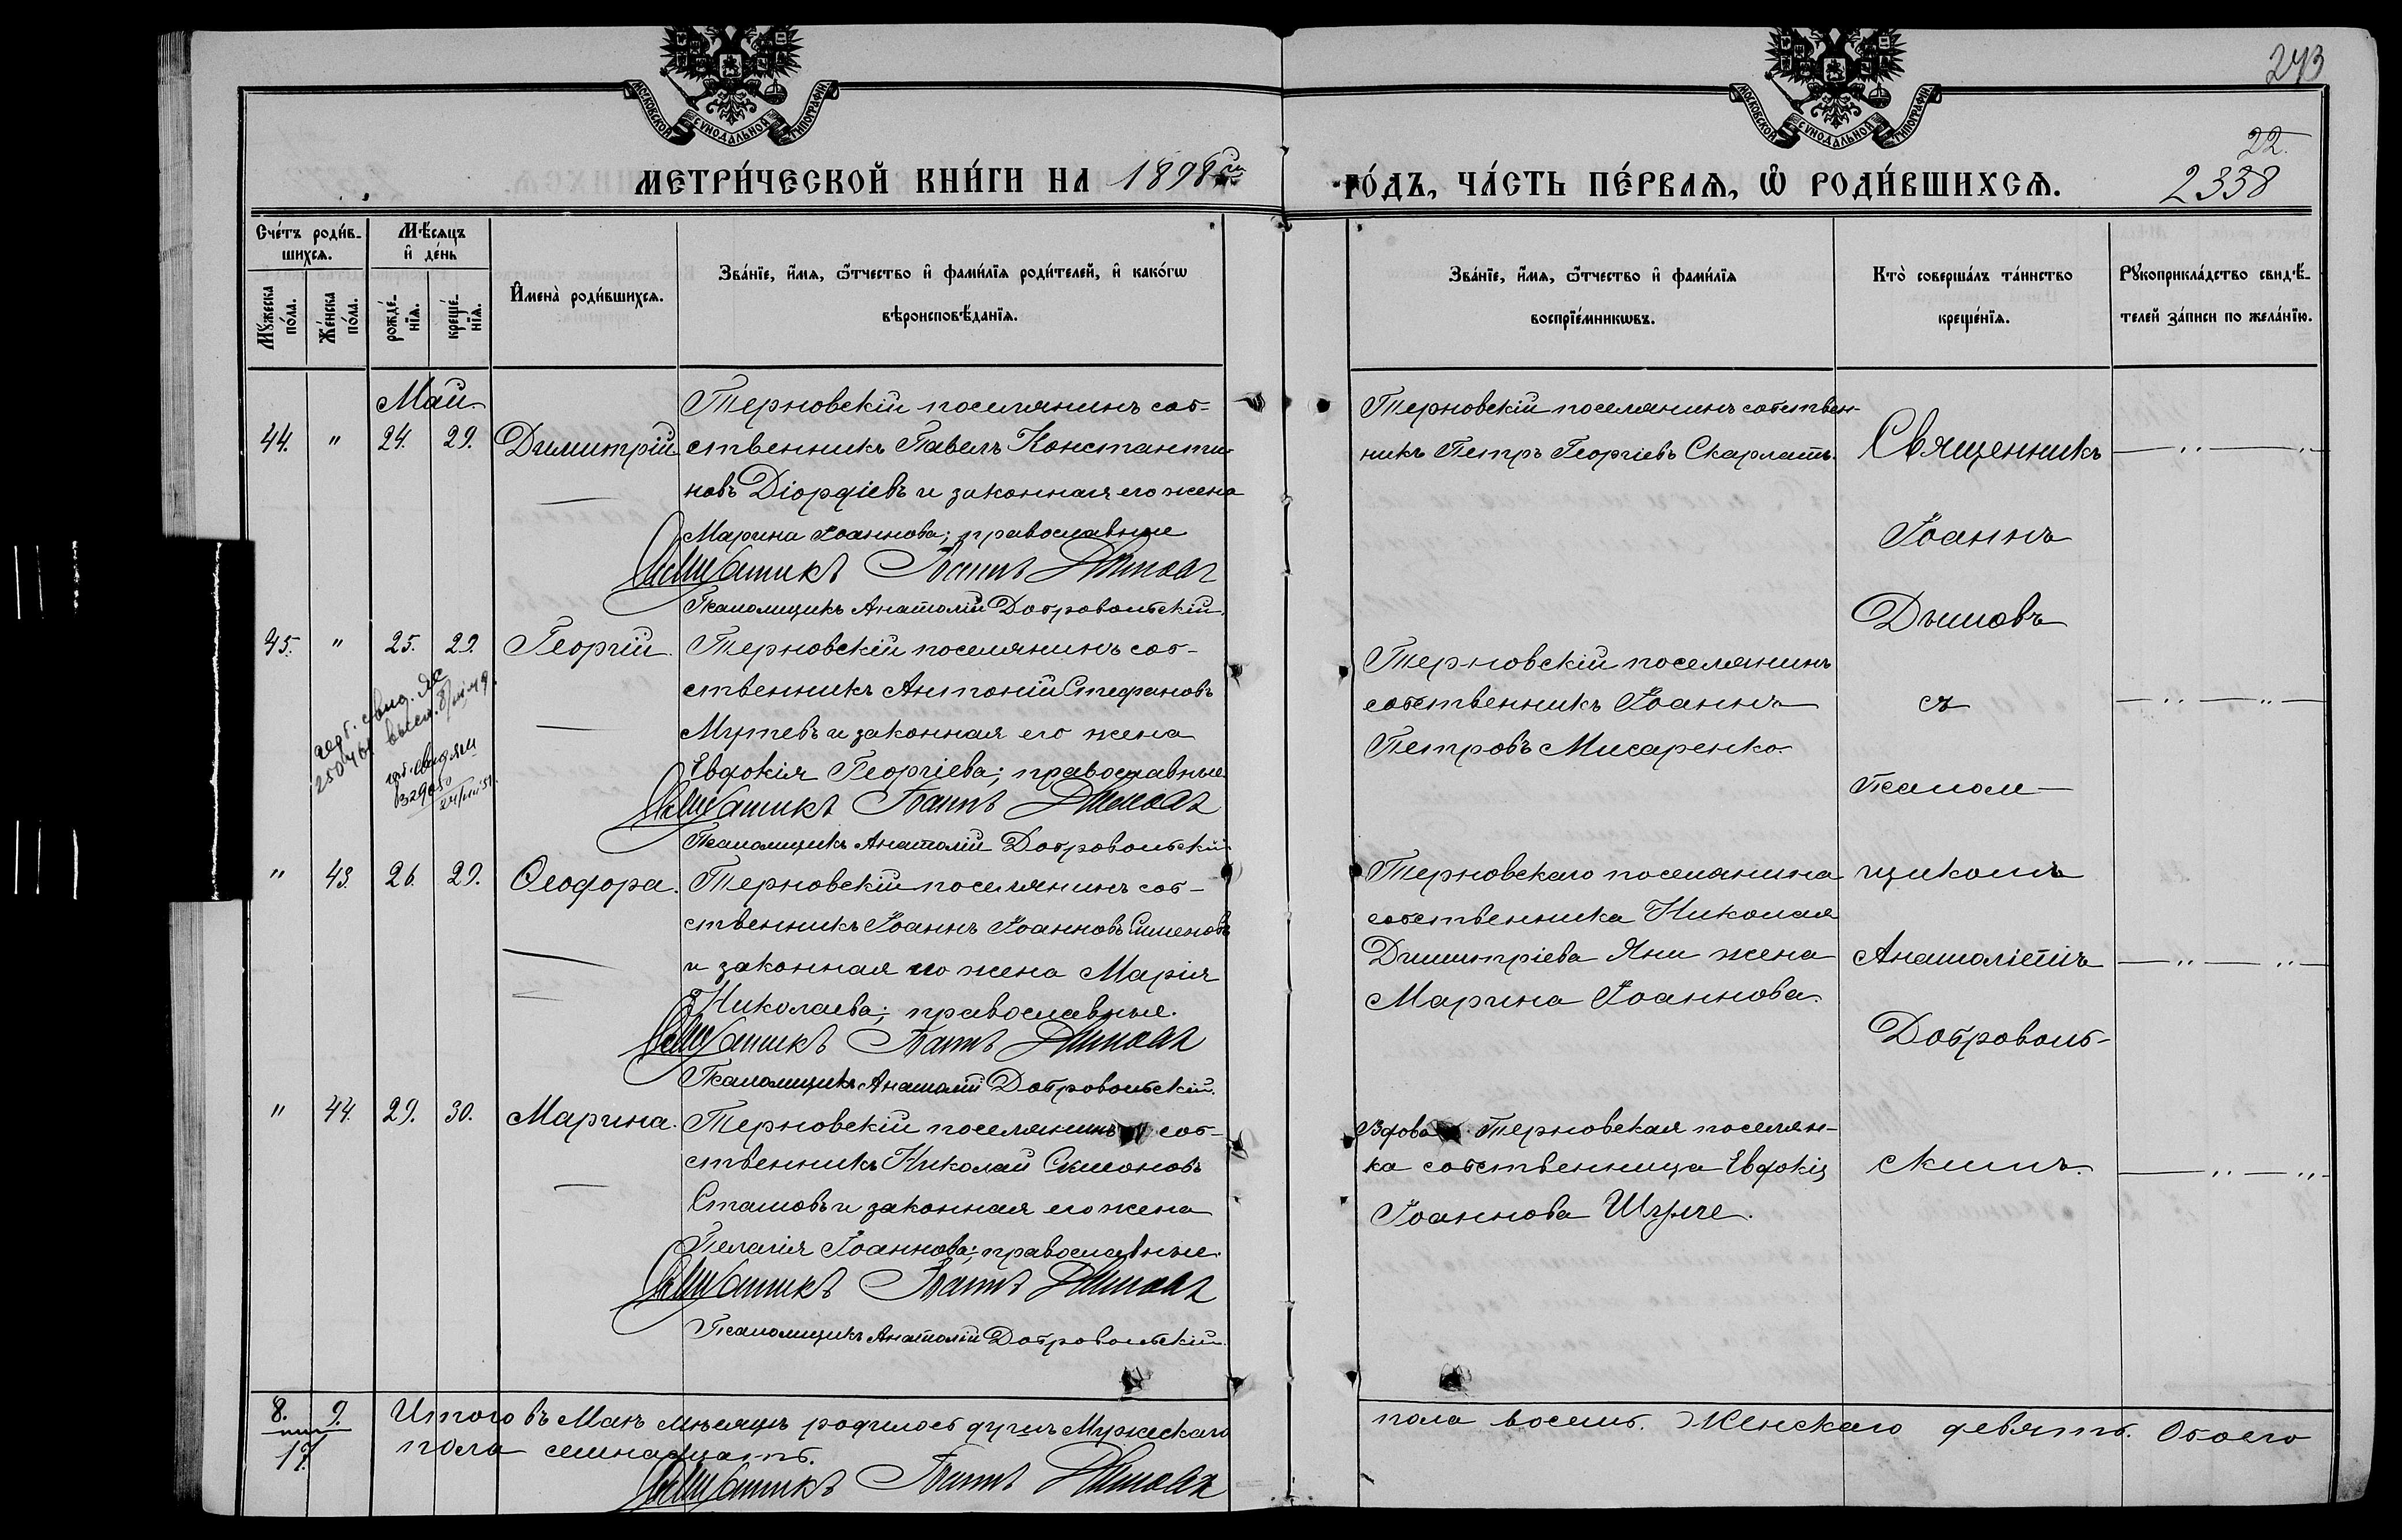 243
МОСКОВСКОЙ СѴНОДАЛЬНОЙ ТИПОГРАФІИ
МОСКОВСКОЙ СѴНОДАЛЬНОЙ ТИПОГРАФІИ
МЕТРИ́ЧЕСКОЙ КНИ́ГИ НА 1898й
ГО́ДЪ, ЧА́СТЬ ПЕ́РВАѦ, Ѡ҃ РОДИ́ВШИХСѦ.
22.
2338
Сче́тъ роди́в-
шихсѧ.
Мѣ́сѧцъ
и҆ де́нь
Мꙋ́жеска
по́ла.
Же́нска
по́ла.
рожде́-
нїѧ.
креще́-
нїѧ.
И҆мена̀ роди́вшихсѧ.
Зва́нїе, и҆́мѧ, ѻ҆́тчество и҆ фами́лїѧ роди́телей, и҆ како́гѡ
вѣроисповѣ́данїѧ.
Зва́нїе, и҆́мѧ, ѻ҆́тчество и҆ фами́лїѧ
воспрїе́мникѡвъ.
Кто̀ соверша́лъ та́инство
креще́нїѧ.
Рꙋкоприкла́дство свидѣ́-
телей за́писи по жела́нїю.
Май
44. " 24. 29. Димитрій
Терновскій поселянинъ соб-
ственникъ Павелъ Константи-
новъ Діордіевъ и законная его жена
Марина Іоаннова; православные
Священникъ Іоаннъ Дымовъ
Псаломщикъ Анатолій Добровольскій.
Терновскій поселянинъ собствен-
никъ Петръ Георгіевъ Скарлатъ.
45. " 25. 29. Георгій.
Терновскій поселянинъ соб-
ственникъ Антоній Стефановъ
Мутевъ и законная его жена
Евдокія Георгіева; православные.
Священникъ Іоаннъ Дымовъ
Псаломщикъ Анатолій Добровольскій
Терновскій поселянинъ
собственникъ Іоаннъ
Петровъ Мисаренко
" 43. 26. 29. Ѳеодора.
Терновскій поселянинъ соб-
ственникъ Іоаннъ Іоанновъ Сименовъ
и законная его жена Марія
Николаева; православные.
Священникъ Іоаннъ Дымовъ
Псаломщикъ Анатолій Добровольскій.
Терновскаго поселянина
собственника Николая
Димитріева Яни жена
Марина Іоаннова.
" 44. 29. 30. Марина.
Терновскій поселянинъ соб-
ственникъ Николай Симоновъ
Стамовъ и законная его жена
Пелагія Іоаннова; православные.
Священникъ Іоаннъ Дымовъ
Псаломщикъ Анатолій Добровольскій.
Вдова Терновская поселян-
ка собственница Евдокія
Іоаннова Шулче.
Священникъ
Іоаннъ
Дымовъ
съ
псалом-
щикомъ
Анатоліемъ
Доброволь-
скимъ.
8. 9.
17.
Итого въ Маѣ мѣсяцѣ родилось душъ Мужескаго
пола восемь. Женскаго девять. Обоего
пола семнадцать.
Священникъ Іоаннъ Дымовъ